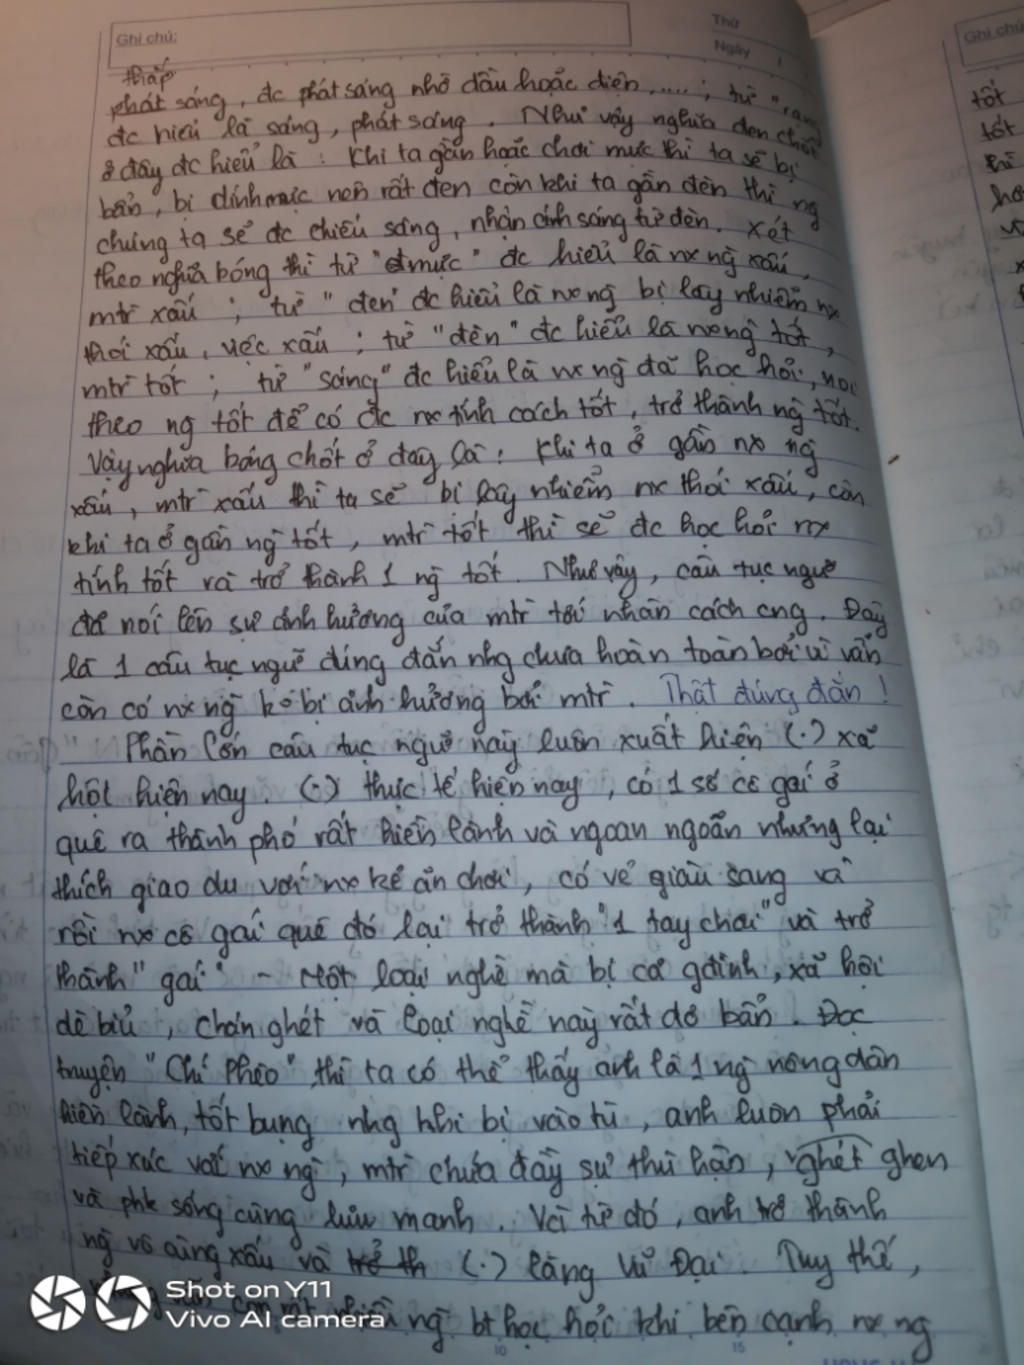 Ghi chú:
Thứ
Ngày
Ghi chú
thắp
phát sáng, đc phát sáng nhờ dầu hoặc điện,....; từ "rạng
đc hiểu là sáng, phát sáng. Như vậy nghĩa đen chốt
ở đây đc hiểu là : Khi ta gần hoặc chơi mực thì ta sẽ bị
bẩn, bị dính mực nên rất đen còn khi ta gần đèn thì ng
chúng ta sẽ đc chiếu sáng, nhận ánh sáng từ đèn. Xét
theo nghĩa bóng thì từ "mực" đc hiểu là nx ng xấu,
mtr xấu ; từ "đen" đc hiểu là nx ng bị lây nhiễm nx
thói xấu, việc xấu ; từ "đèn" đc hiểu là nx ng tốt,
mtr tốt ; từ "sáng" đc hiểu là nx ng đã học hỏi, noi
theo ng tốt để có đc nx tính cách tốt, trở thành ng tốt.
Vậy nghĩa bóng chốt ở đây là : Khi ta ở gần nx ng
xấu, mtr xấu thì ta sẽ bị lây nhiễm nx thói xấu, còn
khi ta ở gần ng tốt, mtr tốt thì sẽ đc học hỏi nx
tính tốt và trở thành 1 ng tốt. Như vậy, câu tục ngữ
đã nói lên sự ảnh hưởng của mtr tới nhân cách cng. Đây
là 1 câu tục ngữ đúng đắn nhg chưa hoàn toàn bởi vì vẫn
còn có nx ng ko bị ảnh hưởng bởi mtr. Thật đúng đắn !
Phần lớn câu tục ngữ này luôn xuất hiện (.) xã
hội hiện nay. (.) thực tế hiện nay, có 1 số cô gái ở
quê ra thành phố rất hiền lành và ngoan ngoãn nhưng lại
thích giao du với nx kẻ ăn chơi, có vẻ giàu sang và
rồi nx cô gái quê đó lại trở thành "1 tay chơi" và trở
thành "gái" - Một loại nghề mà bị cả gđình, xã hội
dè bỉu, chán ghét và loại nghề này rất dơ bẩn. Đọc
truyện "Chí Phèo" thì ta có thể thấy anh là 1 ng nông dân
hiền lành, tốt bụng nhg khi bị vào tù, anh luôn phải
tiếp xúc với nx ng, mtr chứa đầy sự thù hận, ghét ghen
và phk sống cũng lưu manh. Và từ đó, anh trở thành
ng vô cùng xấu và trở th (.) làng Vũ Đại. Tuy thế,
còn rất nhiều ng bt học hỏi khi bên cạnh nx ng
Shot on Y11
Vivo AI camera
10
15
tốt
tốt